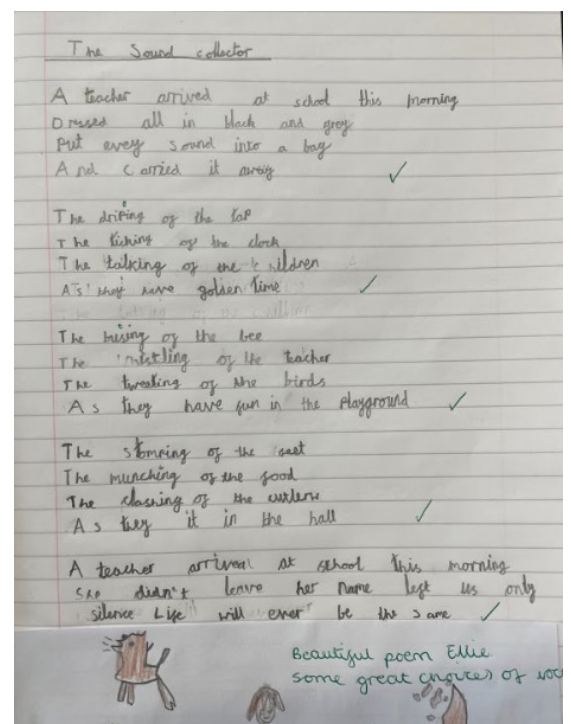 The Sound collector
A teacher arrived at school this morning
Dressed all in black and grey
Put evey sound into a bag
And carried it away
The driping of the tap
The ticking of the clock
The talking of the children
As they have golden time
The busing of the bee
The whistling of the teacher
The tweeting of the birds
As they have fun in the playground
The stomping of the
The munching of the food
The clashing of the
As they it in the hall
A teacher arrived at school this morning
She didn't leave her name left us only
silence Life will ever be the same
Beautiful poem Ellie
some great choices of voc